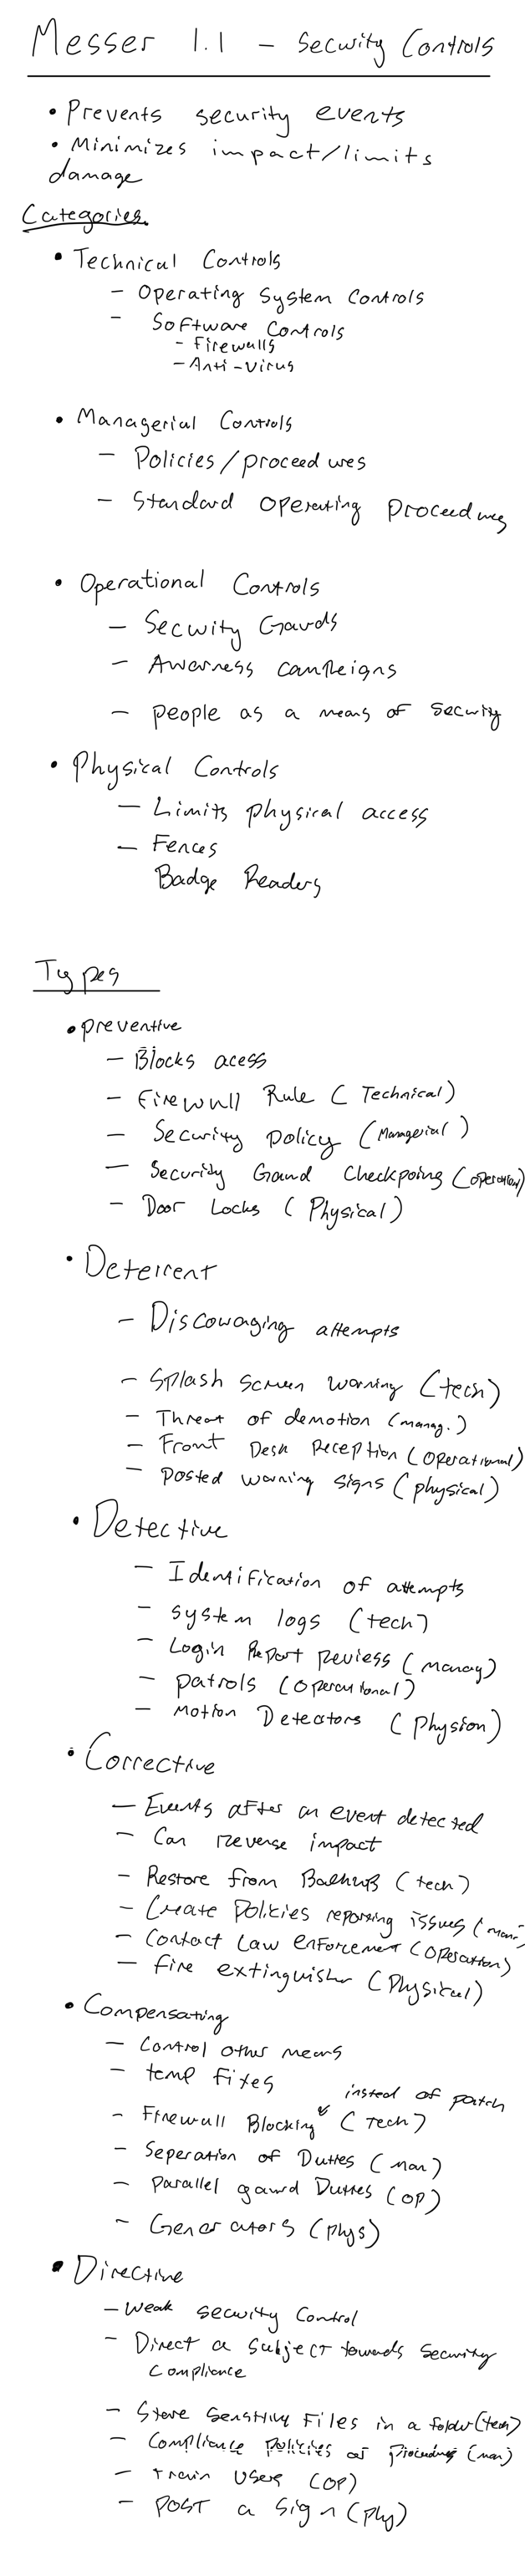 Messer 1.1 - Security Controls
• Prevents security events
• Minimizes impact/limits
damage
Categories
• Technical Controls
- Operating System Controls
- Software Controls
- Firewalls
- Anti-virus
• Managerial Controls
- Policies/proceedures
- Standard Operating Proceedures
• Operational Controls
- Security Gaurds
- Awarness campeigns
- people as a means of security
• Physical Controls
- Limits physical access
- Fences
Badge Readers
Types
• preventive
- Blocks acess
- Firewall Rule (Technical)
- Security policy (Managerial)
- Security Gaurd Checkpoing (operational)
- Door Locks (Physical)
• Deterrent
- Discouraging attempts
- Splash screen warning (tech)
- Threat of demotion (manag.)
- Front Desk reception (operational)
- posted warning signs (physical)
• Detective
- Identification of attempts
- system logs (tech)
- Login Report reviess (manag)
- patrols (operational)
- Motion Detectors (physical)
• Corrective
- Events after an event detected
- Can reverse impact
- Restore from Backups (tech)
- Create policies reporting issues (man)
- Contact Law enforcement (operation)
- fire extinguisher (Physical)
• Compensating
- Control other means
- temp fixes
insted of patch
- Firewall Blocking (Tech)
- Seperation of Duties (man)
- parallel gaurd Duties (op)
- Generators (phys)
• Directive
- Weak security Control
- Direct a subject towards security
compliance
- Store sensitive files in a folder (tech)
- Compliance policies as procedures (man)
- train users (op)
- POST a sign (phy)